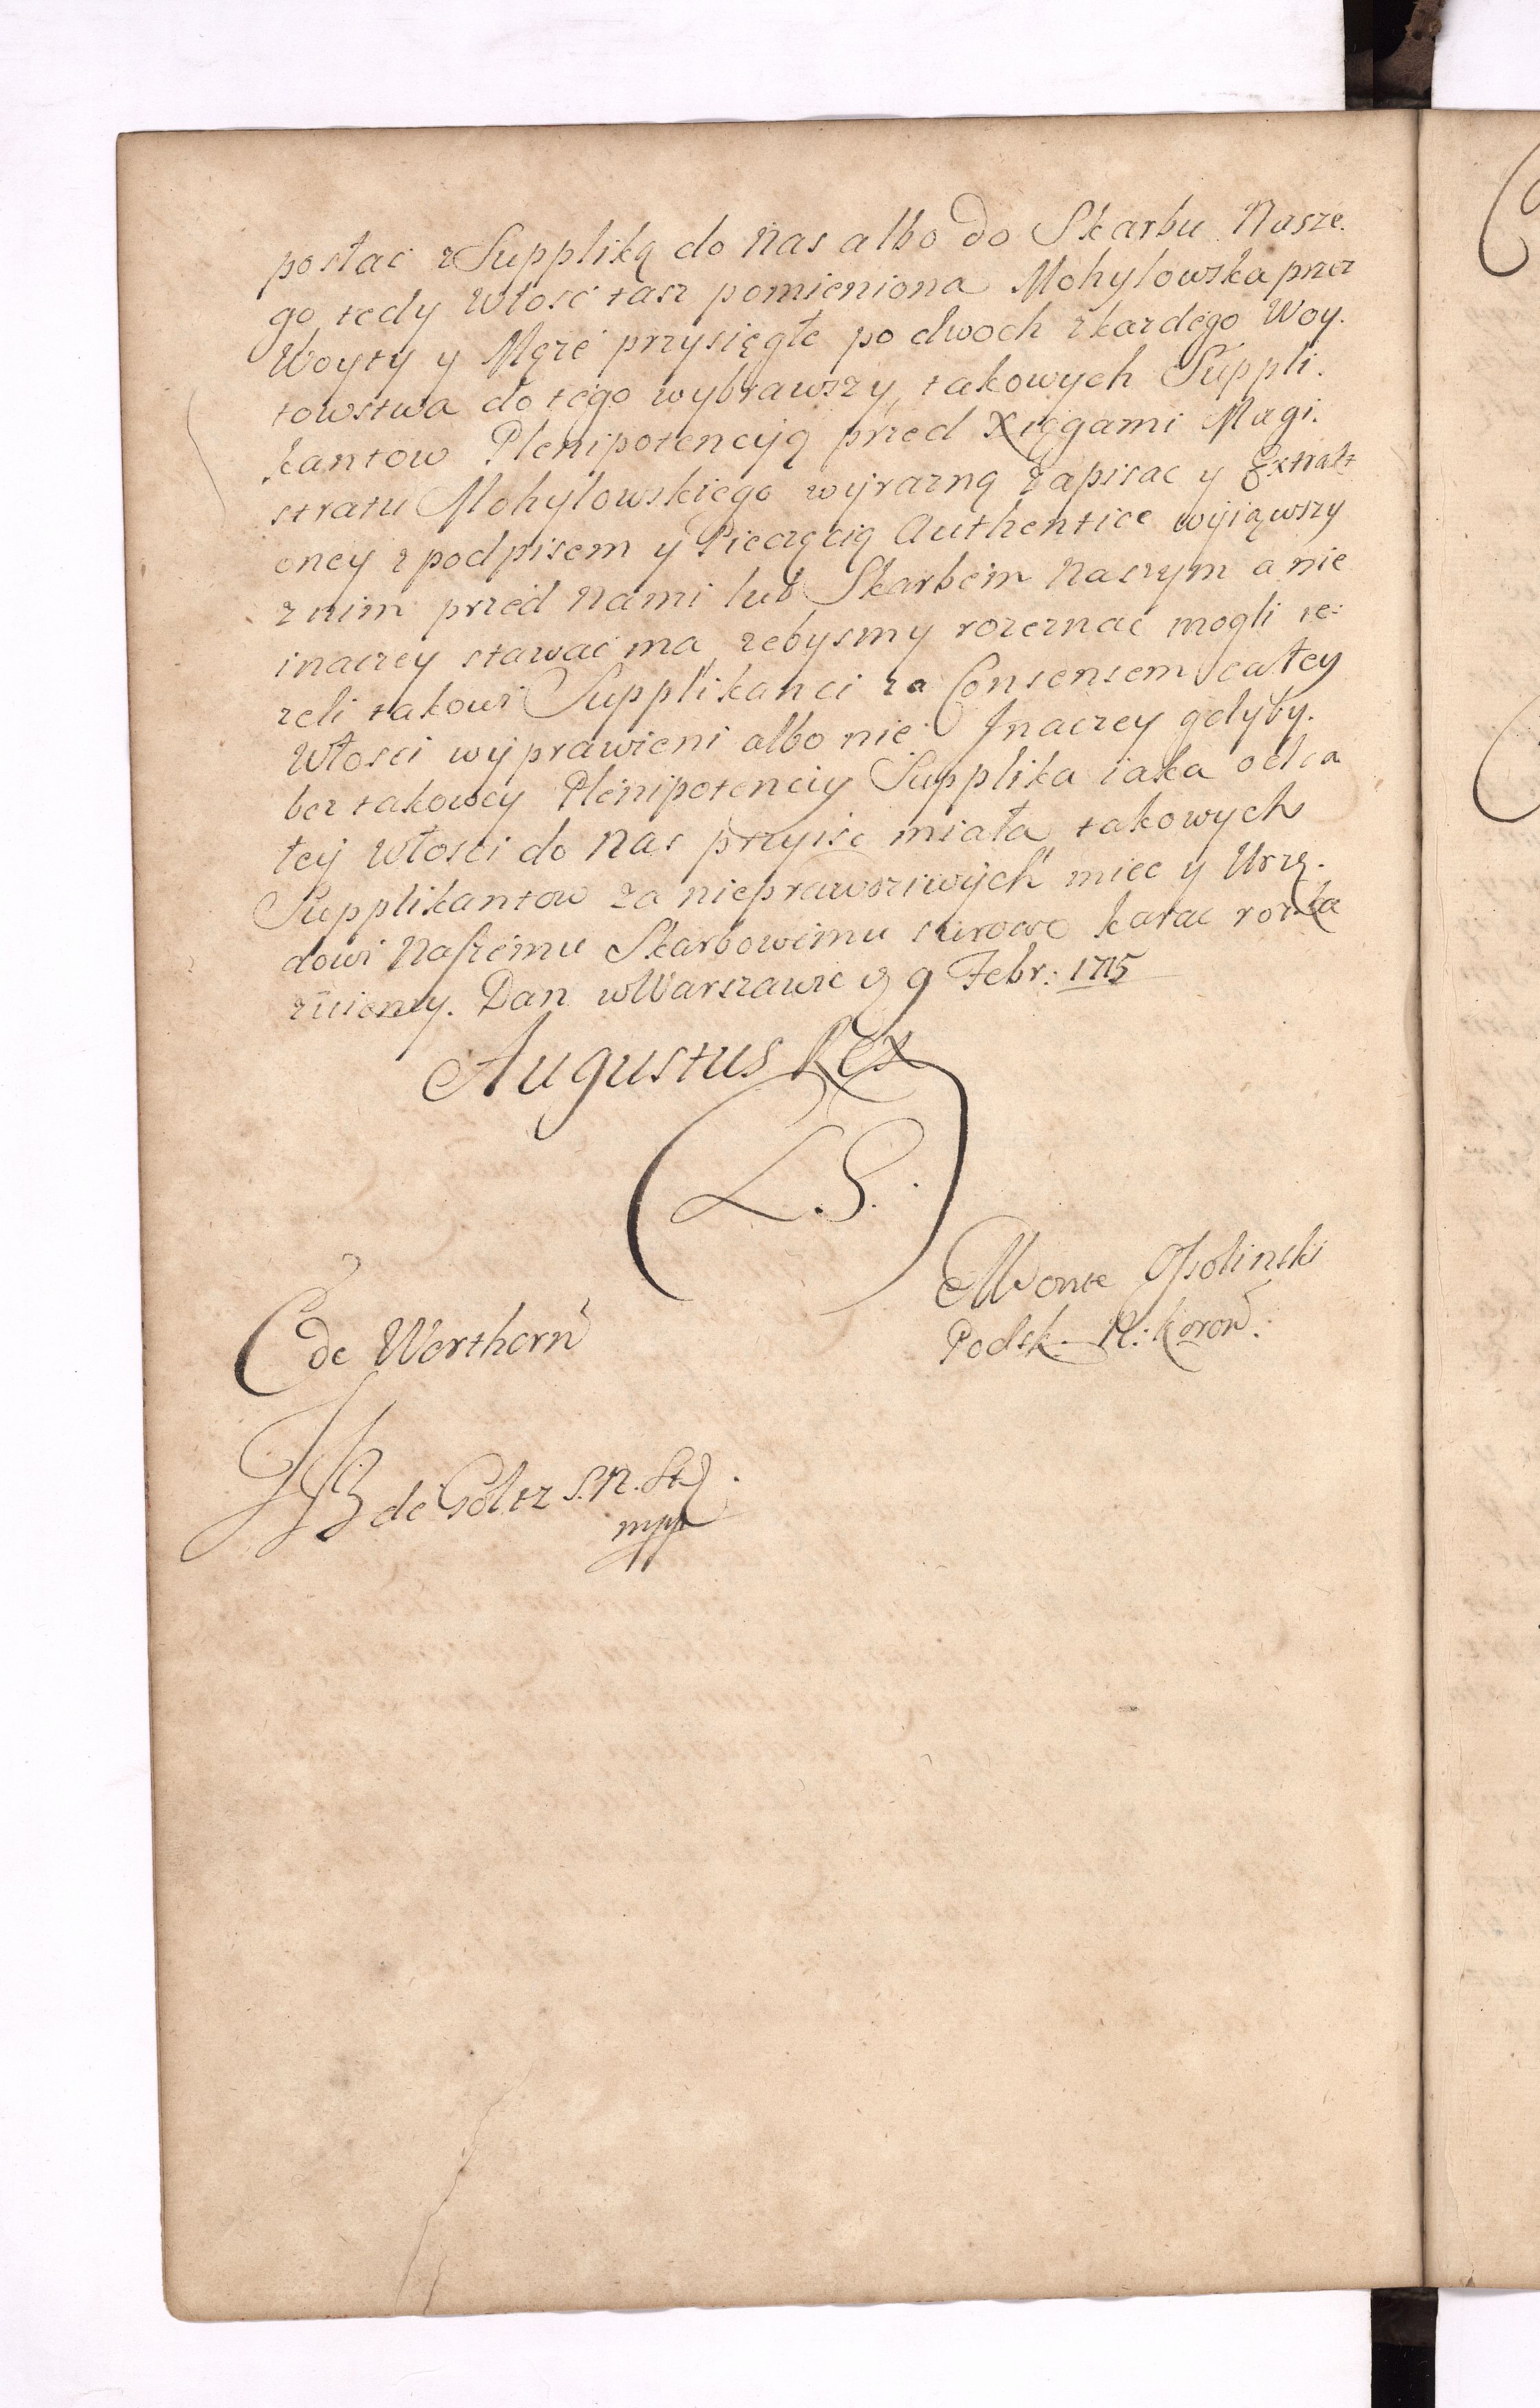 posłac z Suppliką do Nas albo do Skarbu Nasze.
go tedy Włosć tasz pomieniona Mohylowska przez
Woyty y Męże przysięgłe po dwoch z kazdego Woy.
towstwa do tego wybrawszy, takowych Suppli.
kantow Plenipotencyą przed Xięgami Magi.
stratu Mohylowskiego wyrazną zapisac y Extrakt
oney z podpisem y Pieczęcią Authentice wyiąwszy
z nim przed Nami lub Skarbem Naszym a nie
inaczey stawac ma, zebysmy rozeznac mogli ie:
zeli takowi Supplikanci za Consensem całey
Włosci wyprawieni albo nie. Inaczey gdyby.
bez takowey Plenipotenciy Supplika iaka od ca
łey Włosci do Nas przyisc miała, takowych
Supplikantow za nieprawdziwych miec y Urzę.
dowi Naszemu Skarbowemu surowo karac rozka
zuiemy. Dan w Warszawie d 9 Febr: 1715
Augustus Rex
(L.S.)
Ossolinski
Podsk. N: Koron:
C de Werthern
de Goltz S.N.St.
mpp